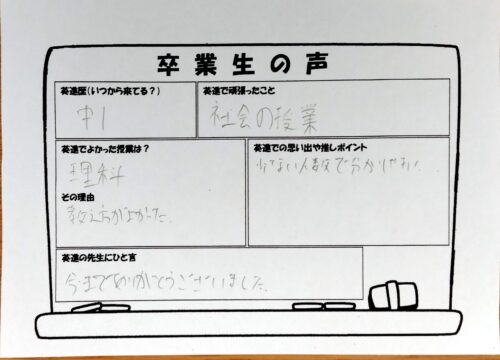 卒業生の声
英進歴(いつから来てる?)
中1
英進で頑張ったこと
社会の授業
英進でよかった授業は?
理科
その理由
教え方がよかった.
英進での思い出や推しポイント
少ない人数で分かりやすい.
英進の先生にひと言
今までありがとうございました.